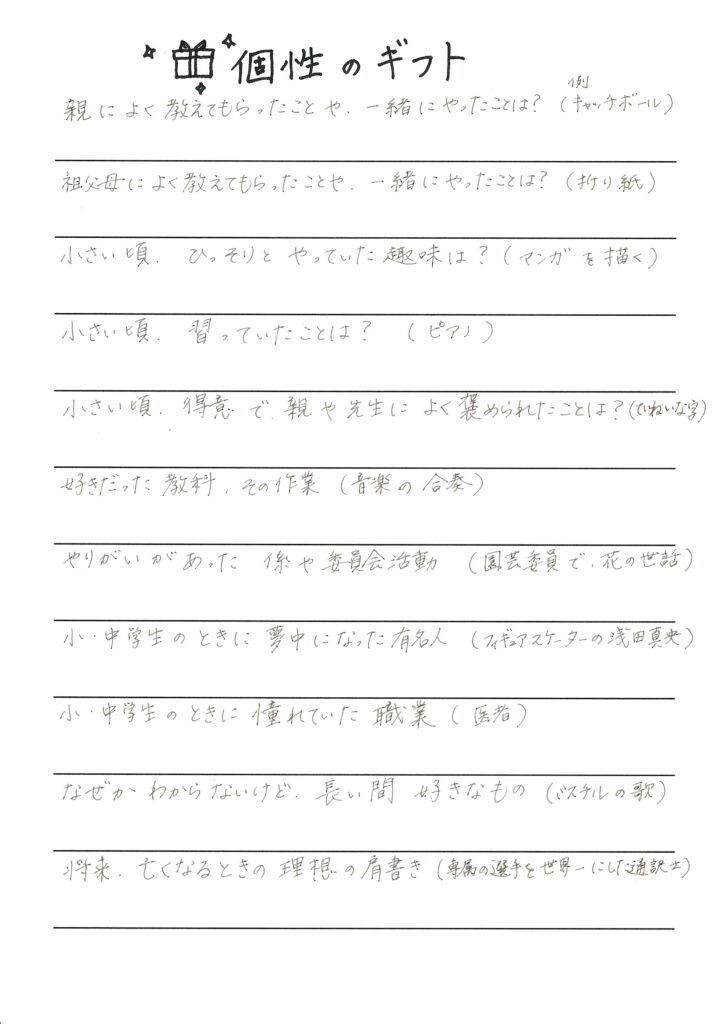 個性のギフト
例
親によく教えてもらったことや、一緒にやったことは?(キャッチボール)
祖父母によく教えてもらったことや、一緒にやったことは?(折り紙)
小さい頃、ひっそりとやっていた趣味は?(マンガを描く)
小さい頃、習っていたことは?(ピアノ)
小さい頃、得意で親や先生によく褒められたことは?(ていねいな字)
好きだった教科、その作業(音楽の合奏)
やりがいがあった係や委員会活動(園芸委員で、花の世話)
小・中学生のときに夢中になった有名人(フィギュアスケーターの浅田真央)
小・中学生のときに憧れていた職業(医者)
なぜかわからないけど、長い間好きなもの(バスチルの歌)
将来、亡くなるときの理想の肩書き(専属の選手を世界一にした通訳士)